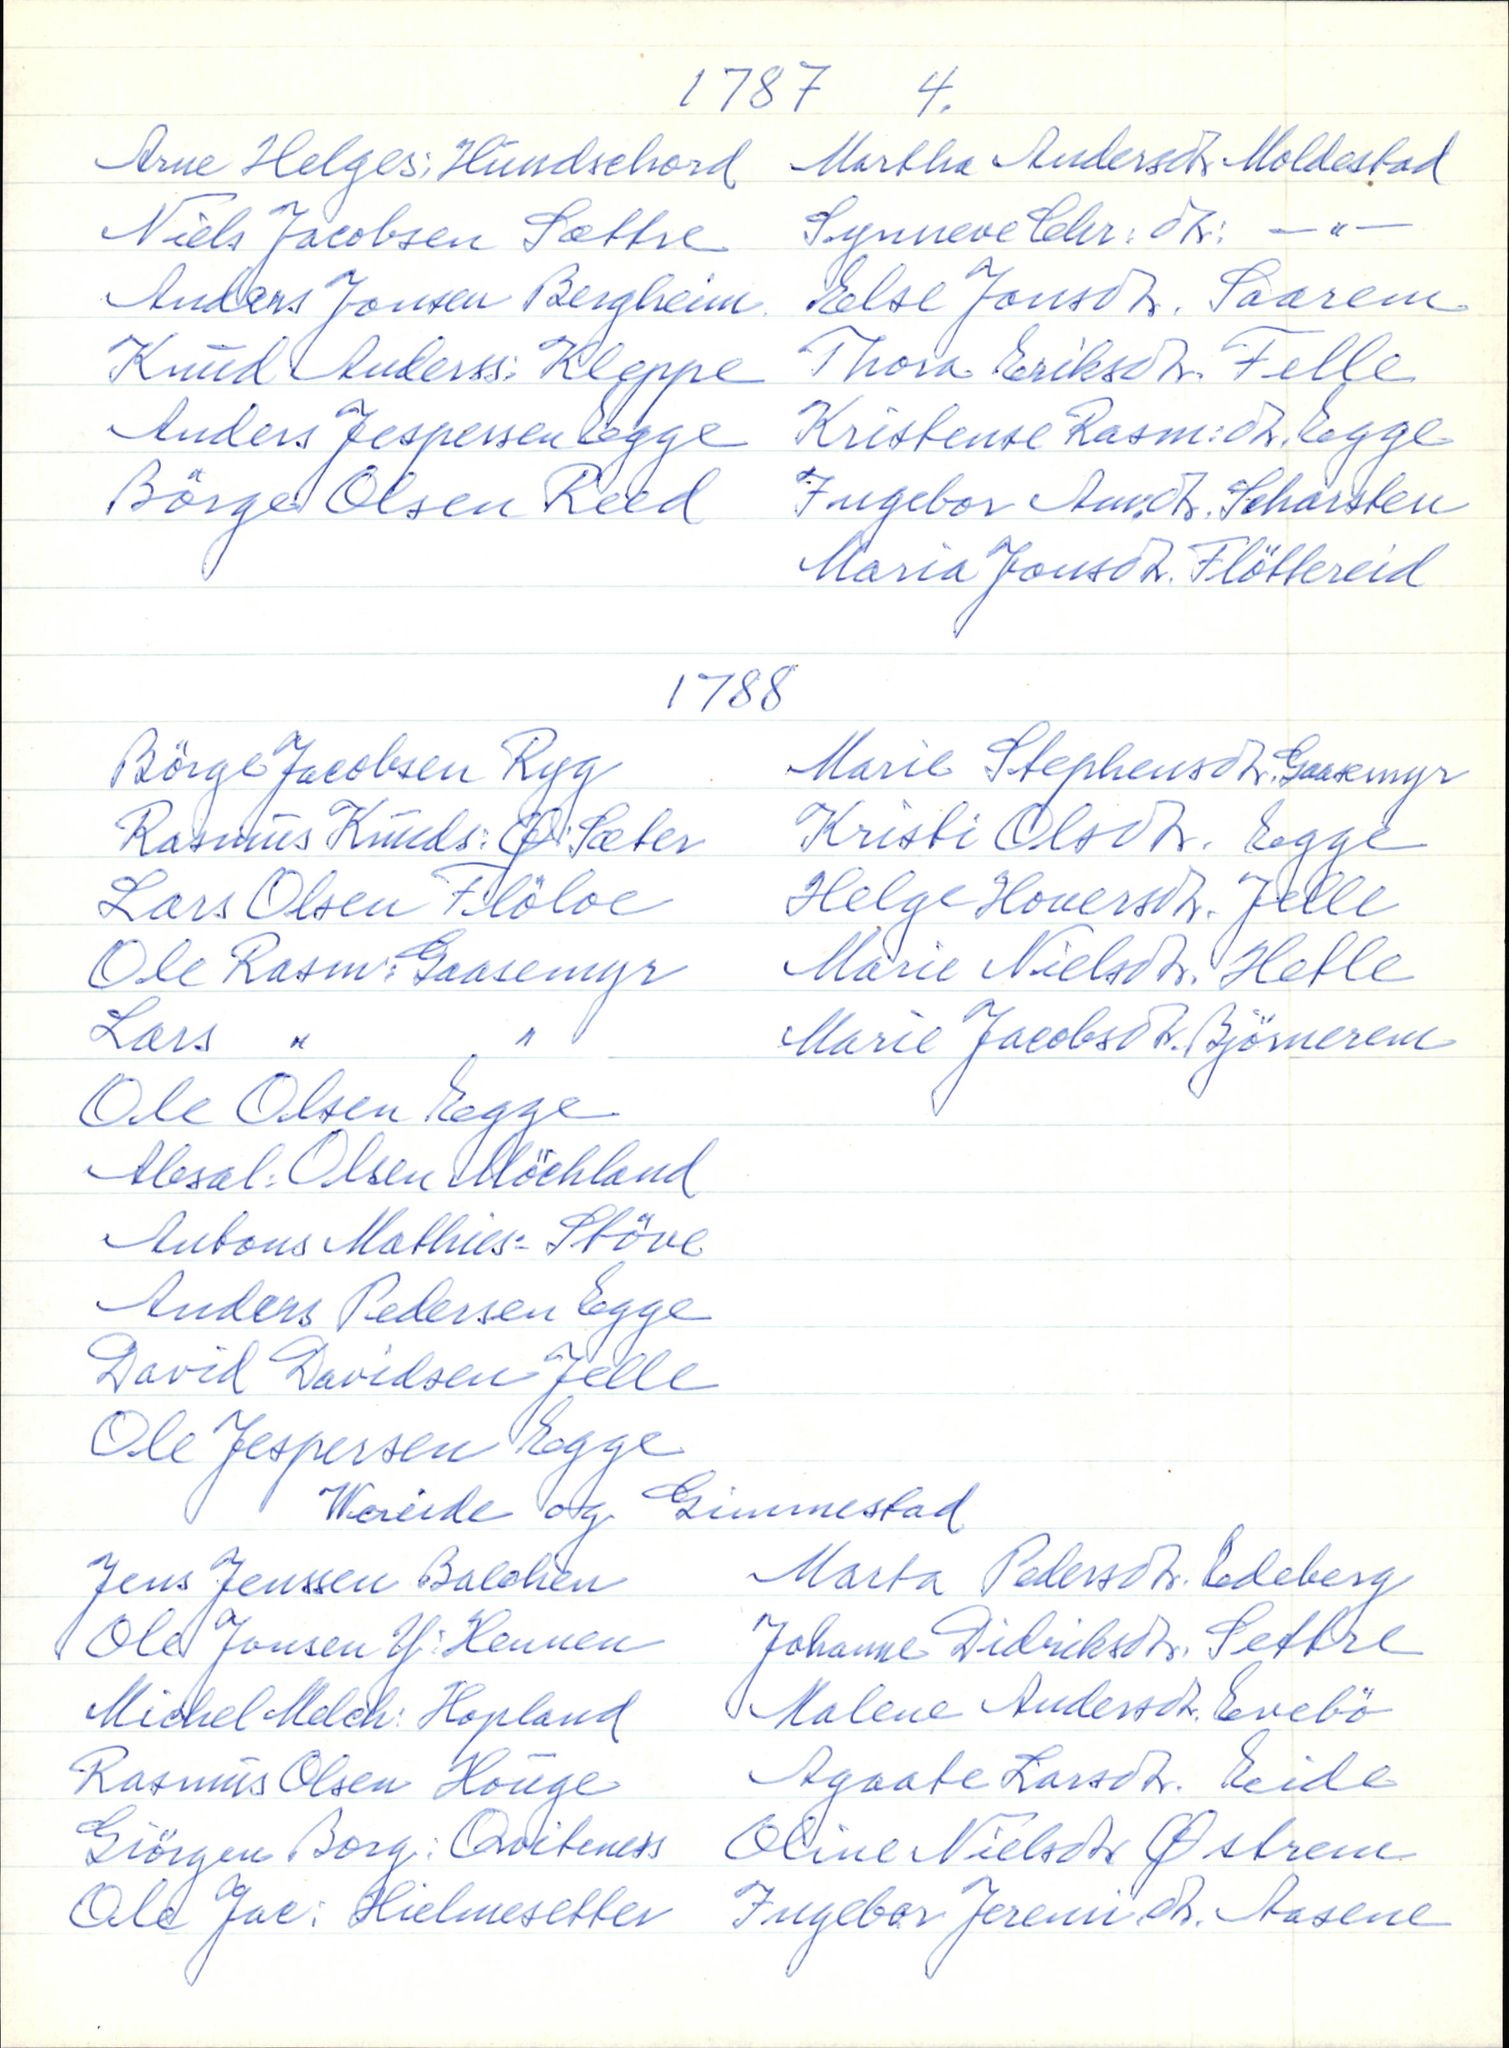 1787 4.
Arne Helges: Hundschord Martha Andersdtr. Moldestad
Niels Jacobsen Sættre Synneve Chr: dtr: —"—
Anders Jonsen Bergheim. Else Jonsdtr. Saarem
Knud Anderss: Kleppe Thora Eriksdtr. Felle
Anders Jespersen Egge Kristense Rasm: dtr. Egge
Börge Olsen Reed Ingebor An.dtr. Scharsten
Maria Jonsdtr. Flöttereid
1788
Börge Jacobsen Ryg Marie Stephensdtr. Gaasemyr
Rasmus Knuds: Ø: Sæter Kristi Olsdtr. Egge
Lars Olsen Flöloe Helge Hoversdtr. Jelle
Ole Rasm: Gaasemyr Marie Nielsdtr. Hetle
Lars " " Marie Jacobsdtr. Björnerem
Ole Olsen Egge
Absal: Olsen Möchland
Antons Mathies: Støve
Anders Pedersen Egge
David Davidsen Jelle
Ole Jespersen Egge
Wereide og Gimmestad
Jens Jenssen Balchen Marta Pedersdtr. Edeberg
Ole Jonsen Y: Hennen Johanne Didriksdtr. Settre
Michel Melch: Hopland Malene Andersdtr. Evebö
Rasmus Olsen Houge Agaate Larsdtr. Eide
Giörgen Borg: Qviteness Oline Nielsdtr Østrem
Ole Jac: Hielmesetter Ingebor Jeremi.dtr. Aasene